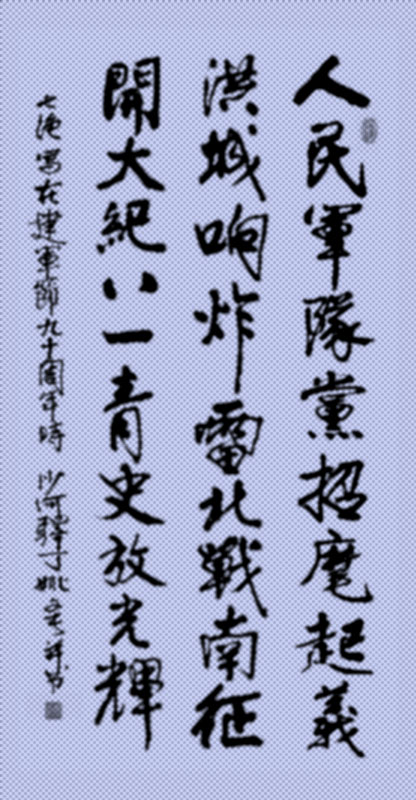 人民軍隊黨招麾起義
洪城响炸雷北戰南征
開大紀八一青史放光輝
七港寫在建軍節九十周年時 沙河驛子姚